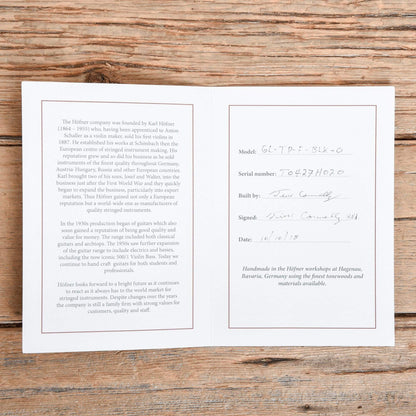 The Höfner company was founded by Karl Höfner
(1864 – 1955) who, having been apprenticed to Anton
Schaller as a violin maker, sold his first violins in
1887. He established his works at Schönbach then the
European centre of stringed instrument making. His
reputation grew and so did his business as he sold
instruments of the finest quality throughout Germany,
Austria Hungary, Russia and other European countries
Karl brought two of his sons, Josef and Walter, into the
business just after the First World War and they quickly
began to expand the business, particularly into export
markets. Thus Höfner gained not only a European
reputation but a world-wide one as manufacturers of
quality stringed instruments.
In the 1930s production began of guitars which also
soon gained a reputation of being good quality and
value for money. The range included both classical
guitars and archtops. The 1950s saw further expansion
of the guitar range to include electrics and basses,
including the now iconic 500/1 Violin Bass. Today we
continue to hand craft guitars for both students and
professionals.
Höfner looks forward to a bright future as it continues
to react as it always has to the world market for
stringed instruments. Despite changes over the years
the company is still a family firm with strong values for
customers, quality and staff.
Model:
Serial number: T0427H020
Built by:
Signed:
Date: 10/10/18
Handmade in the Höfner workshops at Hagenau,
Bavaria, Germany using the finest tonewoods and
materials available.